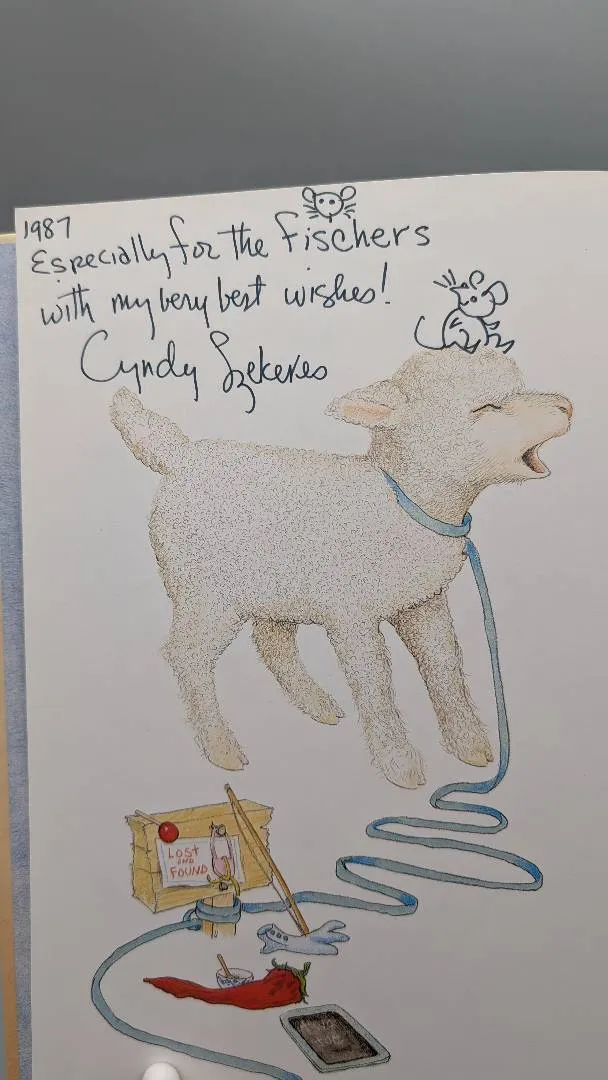 1987
Especially for the Fischers
with my very best wishes!
Cyndy Szekeres
LOST
AND
FOUND